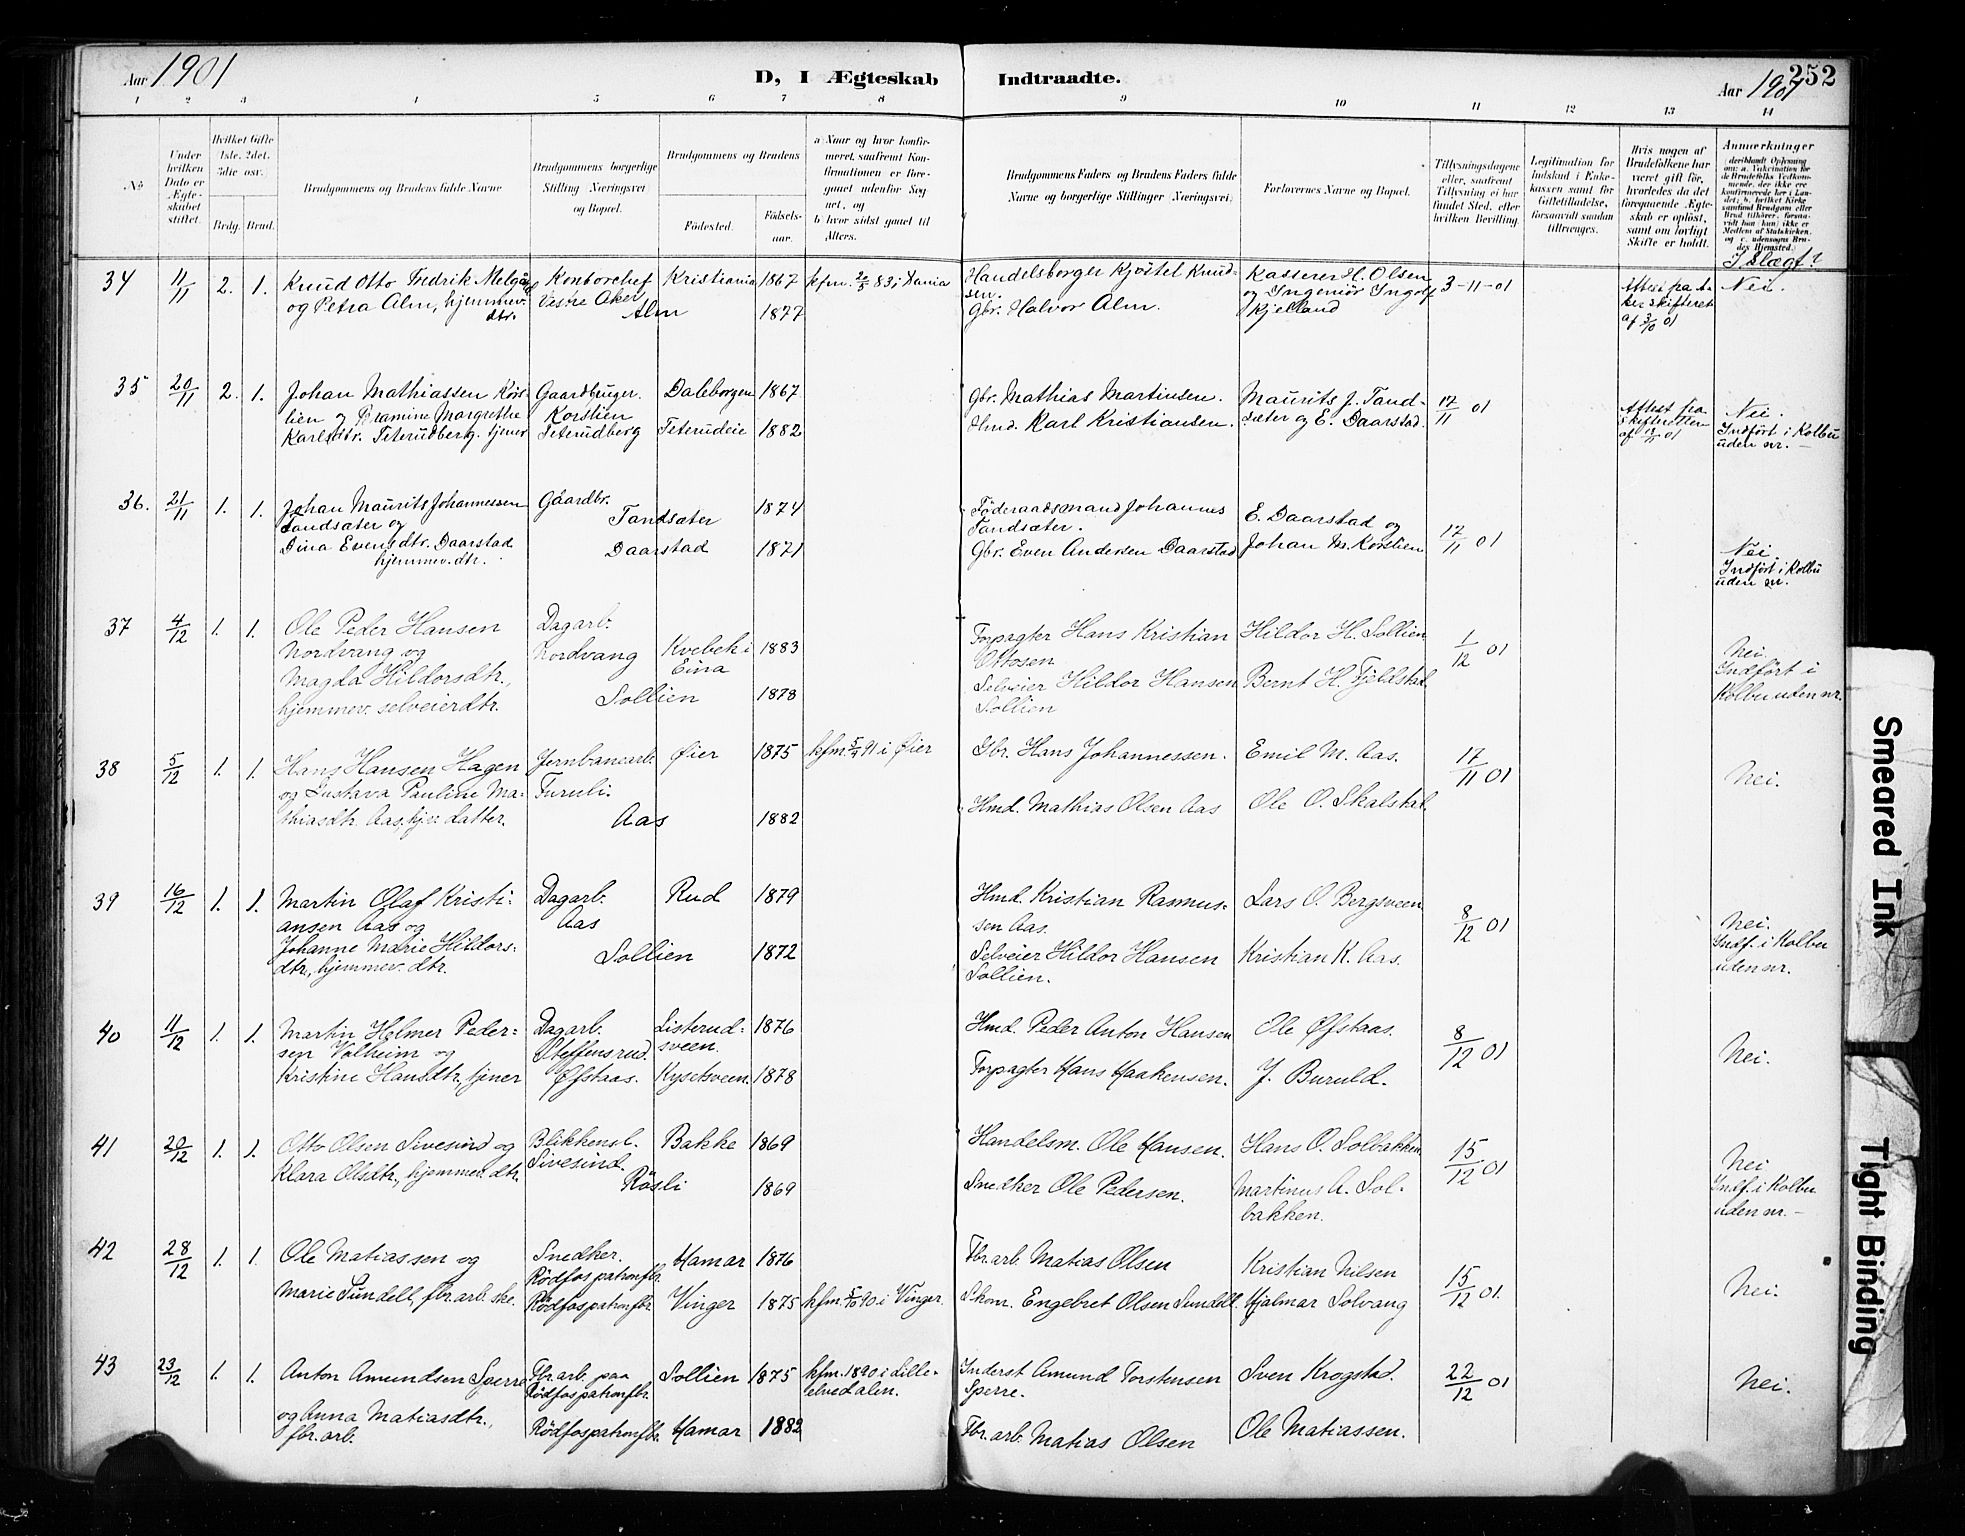 Aar 1901
D, I Ægteskab
Indtraadte.
Aar 1901
252
1 2 3 4 5 6 7 8 9 10 11 12 13 14
No
Under hvilken Dato er Ægteskabet stiftet.
Hvilket Gifte 1ste, 2det, 3die osv.
Brdg. Brud.
Brudgommens og Brudens fulde Navne
Brudgommens borgerlige Stilling (Næringsvei) og Bopæl.
Brudgommens og Brudens
Fødested.
Fødselsaar.
a) Naar og hvor konfirmeret, saafremt Konfirmationen er foregaaet udenfor Sognet, og
b) hvor sidst gaaet til Alters.
Brudgommens Faders og Brudens Faders fulde Navne og borgerlige Stillinger (Næringsvei)
Forlovernes Navne og Bopæl.
Tillysningsdagene eller, saafremt Tillysning ei har fundet Sted, efter hvilken Bevilling
Legitimation for Indskud i Enkekassen samt for Giftetilladelse, forsaavidt saadan tiltrænges.
Hvis nogen af Brudefolkene har været gift før, hvorledes da det foregaaende Ægteskab er opløst, samt om lovligt Skifte er holdt.
Anmærkninger
I Slægt?
34 11/11 2. 1. Knud Otto Fredrik
og Petra Alm, hjemmev. dtr.
Kontorchef Vestre Aker Kristiania 1867 kfm. 83 i Dania
Alm 1877
Handelsborger Kjøstel Knudsen.
Gbr. Halvor Alm.
Kasserer H. Olsen og Ingeniør Ingolf Kjelland
3-11-01
Attest fra Aker skifteret af 01
Nei.
35 20/11 2. 1. Johan Mathiassen Korslien og Margrethe Karlsdtr. Teterudberg, tjener
Gaardbruger. Korslien Daleborgen 1867
Teterudberg Teterudeie 1882
Gbr. Mathias Martinsen.
Hmd. Karl Kristiansen.
Maurits J. Tandsæter og E. Daarstad.
17/11 01
Attest fra skifteretten af 01
Nei. Indført i Kolbu uden nr. -
36. 21/11 1. 1. Johan Maurits Johannessen Tandsæter og
Dina Evensdtr. Daarstad hjemmev. dtr.
Gaardbr. Tandsæter 1874
Daarstad 1871
Föderaadsmand Johannes Tandsæter.
Gbr. Even Andersen Daarstad
E. Daarstad og Johan M. Korslien
17/11 01
Nei. Indført i Kolbu uden nr.
37 4/12 1. 1. Ole Peder Hansen Nordvang og
Magda Hildorsdtr., hjemmev. selveierdtr.
Dagarb. Nordvang Kvebek i Eina 1883
Sollien 1878
Forpagter Hans Kristian Ottosen
Selveier Hildor Hansen Sollien
Hildor H. Sollien
Bernt H. Fjeldstad
1/12 01
Nei. Indført i Kolbu uden nr.
38 5/12 1. 1. Hans Hansen Hagen
og Gustava Pauline Mathiasdtr. Aas, hjv. datter.
Jernbanearb. Furuli. Øier 1875 kfm. 5/4 91 i Øier
Aas 1882
Gbr. Hans Johannessen.
Hmd. Mathias Olsen Aas
Emil M. Aas.
Ole O. Skalstad.
17/11 01
Nei.
39 16/12 1. 1. Martin Olaf Kristiansen Aas og
Johanne Marie Hildorsdtr., hjemmev. dtr.
Dagarb. Aas Rud 1879
Sollien 1872
Hmd. Kristian Rasmussen Aas.
Selveier Hildor Hansen Sollien.
Lars O. Bergsveen
Kristian K. Aas.
8/12 01
Nei. Indf. i Kolbu uden nr.
40 11/12 1. 1. Martin Helmer Pedersen Valheim og
Kristine Hansdtr., tjener
Dagarb. Steffensrud. Listerudsveen. 1876
Øfstaas. Kysetsveen. 1878
Hmd. Peder Anton Hansen
Forpagter Hans Haakensen.
Ole Øfstaas.
J. Buruld.
8/12 01
Nei.
41 20/12 1. 1. Otto Olsen Sivesind og
Klara Olsdtr., hjemmev. dtr.
Blikkensl. Sivesind. Bakke 1869
Røsli 1869
Handelsm. Ole Hansen.
Snedker Ole Pedersen.
Hans O. Solbakken
Martinus A. Solbakken.
15/12 01
Nei Indf. i Kolbu uden nr. -
42 28/12 1. 1. Ole Matiassen og
Marie Sundell, fbr. arb. ske.
Snedker. Rödfos patronfbr. Hamar 1876
Rödfos patronfbr. Vinger 1875 kfm. 5/10 90 i Vinger.
Fbr. arb. Matias Olsen
Skom. Engebret Olsen Sundell.
Kristian Nilsen
Hjalmar Solvang
15/12 01.
Nei.
43 23/12 1. 1. Anton Amundsen Sperre
og Anna Matiasdtr., fbr. arb.
Fbr. arb. paa Rödfos patronfbr. Sollien 1875 kfm. 1890 i Lilleelvedalen.
Rödfos patronfbr. Hamar 1882
Inderst Amund Torstensen Sperre.
Fbr. arb. Matias Olsen
Sven Krogstad.
Ole Matiassen.
22/12 01
Nei.
Smeared Ink
Tight Binding